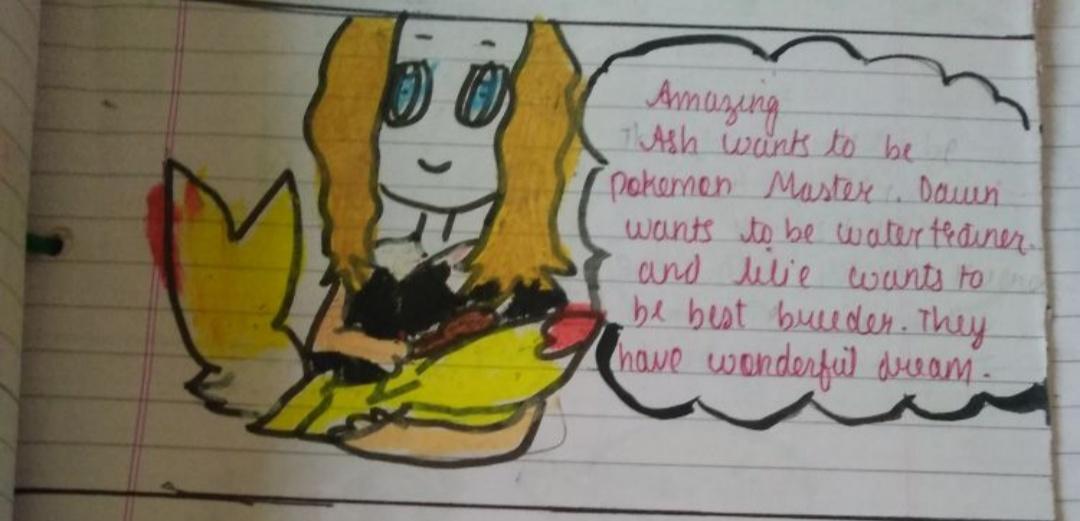 Amazing
Ash wants to be
pokemon Master. Dawn
wants to be water trainer.
and lilie wants to
be best breeder. They
have wonderful dream.